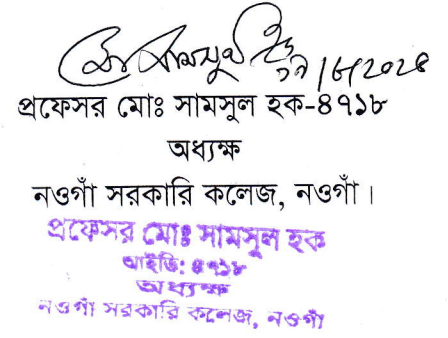 মোঃ সামসুল হক
১৭/৮/২০২৪
প্রফেসর মোঃ সামসুল হক-৪৭১৮
অধ্যক্ষ
নওগাঁ সরকারি কলেজ, নওগাঁ।
প্রফেসর মোঃ সামসুল হক
আইডি: ৪৭১৮
অধ্যক্ষ
নওগাঁ সরকারি কলেজ, নওগাঁ